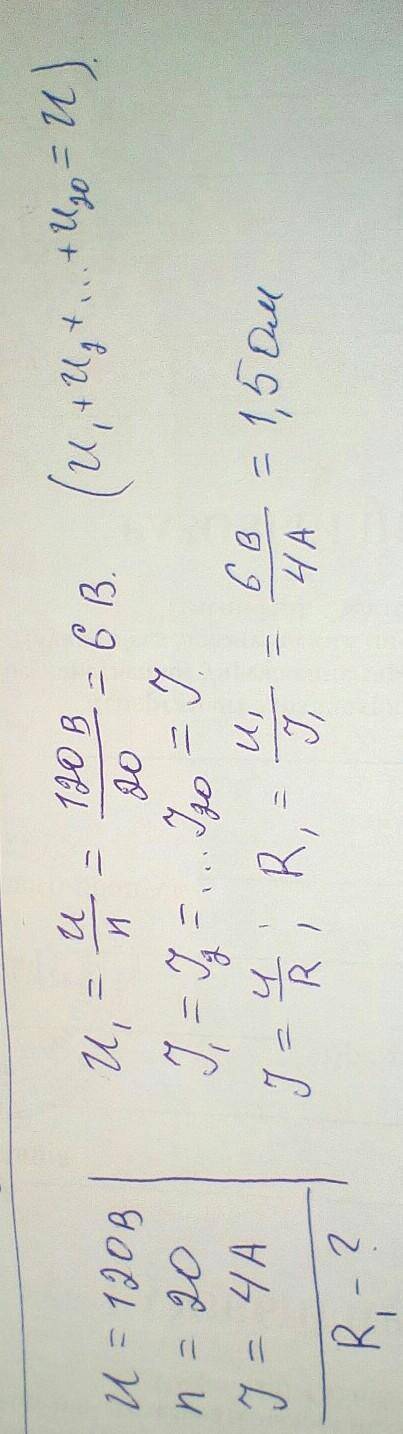 U = 120 В
n = 20
J = 4 А
R₁ - ?
U₁ = U/n = 120 В/20 = 6 В. (U₁ + U₂ + ... + U₂₀ = U).
J₁ = J₂ = ... J₂₀ = J.
J = U/R ; R₁ = U₁/J₁ = 6 В/4 А = 1,5 Ом